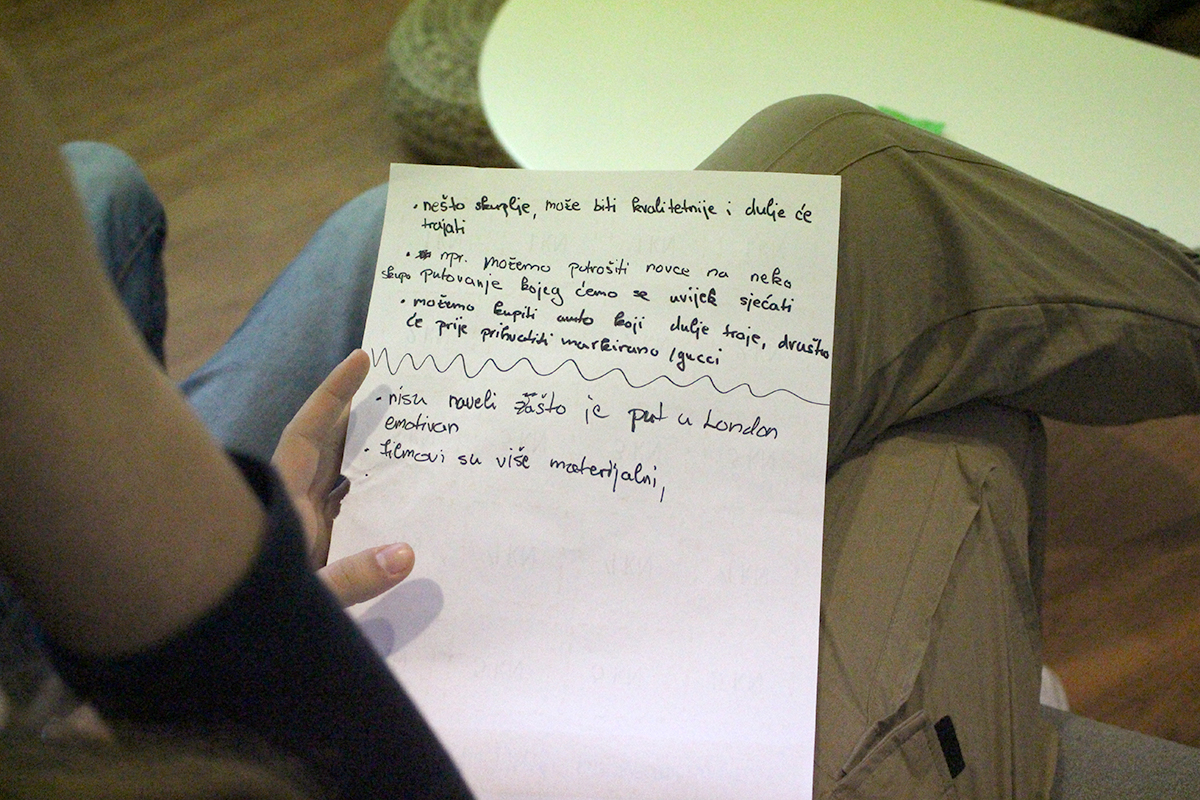 • nešto skuplje, može biti kvalitetnije i dulje će
trajati
• npr. možemo potrošiti novce na neko
skupo putovanje kojeg ćemo se uvijek sjećati
• možemo kupiti auto koji dulje traje, društvo
će prije prihvatiti markirano /gucci
• nisu naveli zašto je put u London
emotivan
• filmovi su više materijalni,
•